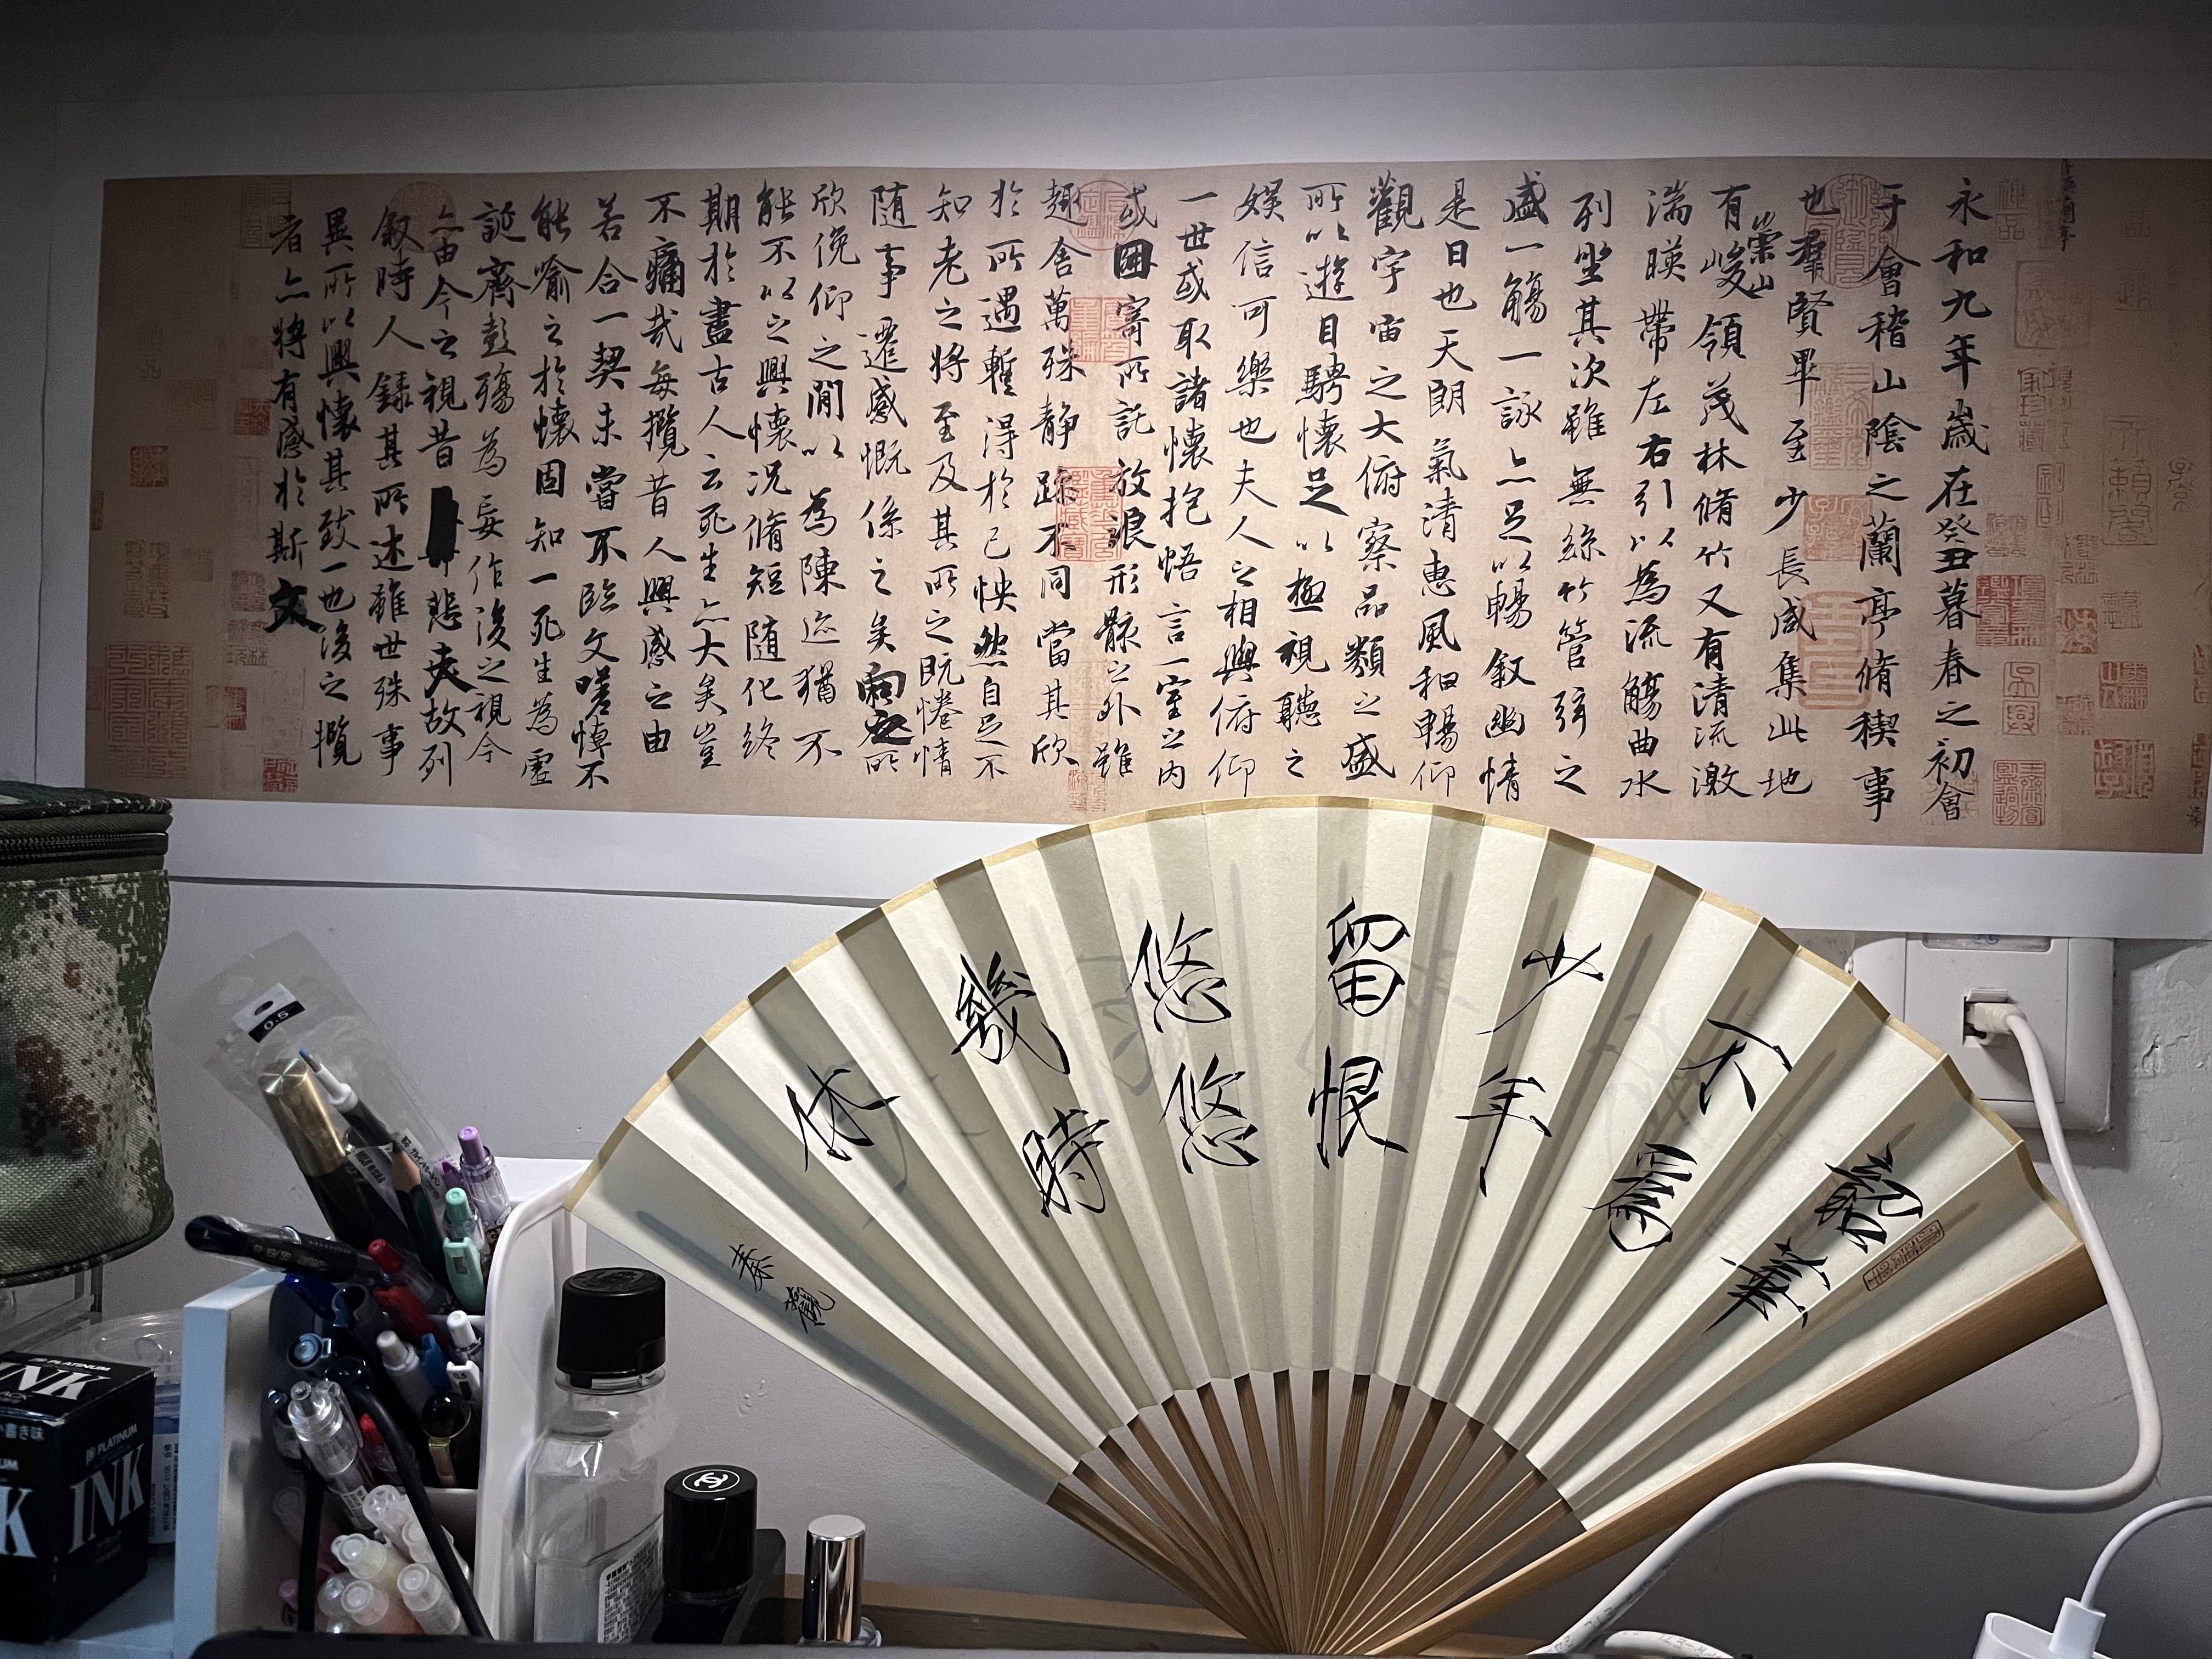 永和九年歲在癸丑暮春之初會
于會稽山陰之蘭亭脩稧事
也羣賢畢至少長咸集此地
有崇山峻領茂林脩竹又有清流激
湍暎帶左右引以為流觴曲水
列坐其次雖無絲竹管弦之
盛一觴一詠亦足以暢叙幽情
是日也天朗氣清惠風和暢仰
觀宇宙之大俯察品類之盛
所以遊目騁懷足以極視聽之
娛信可樂也夫人之相與俯仰
一世或取諸懷抱悟言一室之內
或因寄所託放浪形骸之外雖
趣舍萬殊靜躁不同當其欣
於所遇暫得於己怏然自足不
知老之將至及其所之既惓情
隨事遷感慨係之矣向之所
欣俛仰之閒以為陳迹猶不
能不以之興懷況脩短隨化終
期於盡古人云死生亦大矣豈
不痛哉每攬昔人興感之由
若合一契未嘗不臨文嗟悼不
能喻之於懷固知一死生為虛
誕齊彭殤為妄作後之視今
亦由今之視昔悲夫故列
叙時人錄其所述雖世殊事
異所以興懷其致一也後之攬
者亦將有感於斯文
韶華
不為
少年
留
恨
悠悠
幾時
休
秦觀
0.5
PLATINUM
INK
PLATINUM
INK